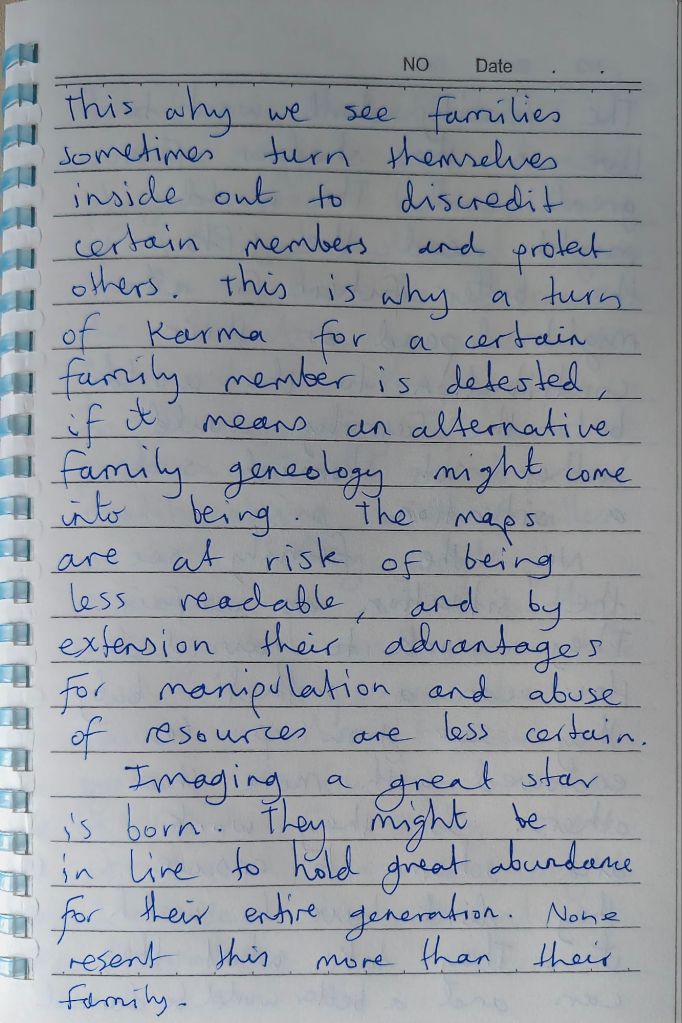 NO Date . .
This why we see families
sometimes turn themselves
inside out to discredit
certain members and protect
others. This is why a turn
of Karma for a certain
family member is detested,
if it means an alternative
family geneology might come
into being. The maps
are at risk of being
less readable, and by
extension their advantages
for manipulation and abuse
of resources are less certain.
Imaging a great star
is born. They might be
in line to hold great abundance
for their entire generation. None
resent this more than their
family.